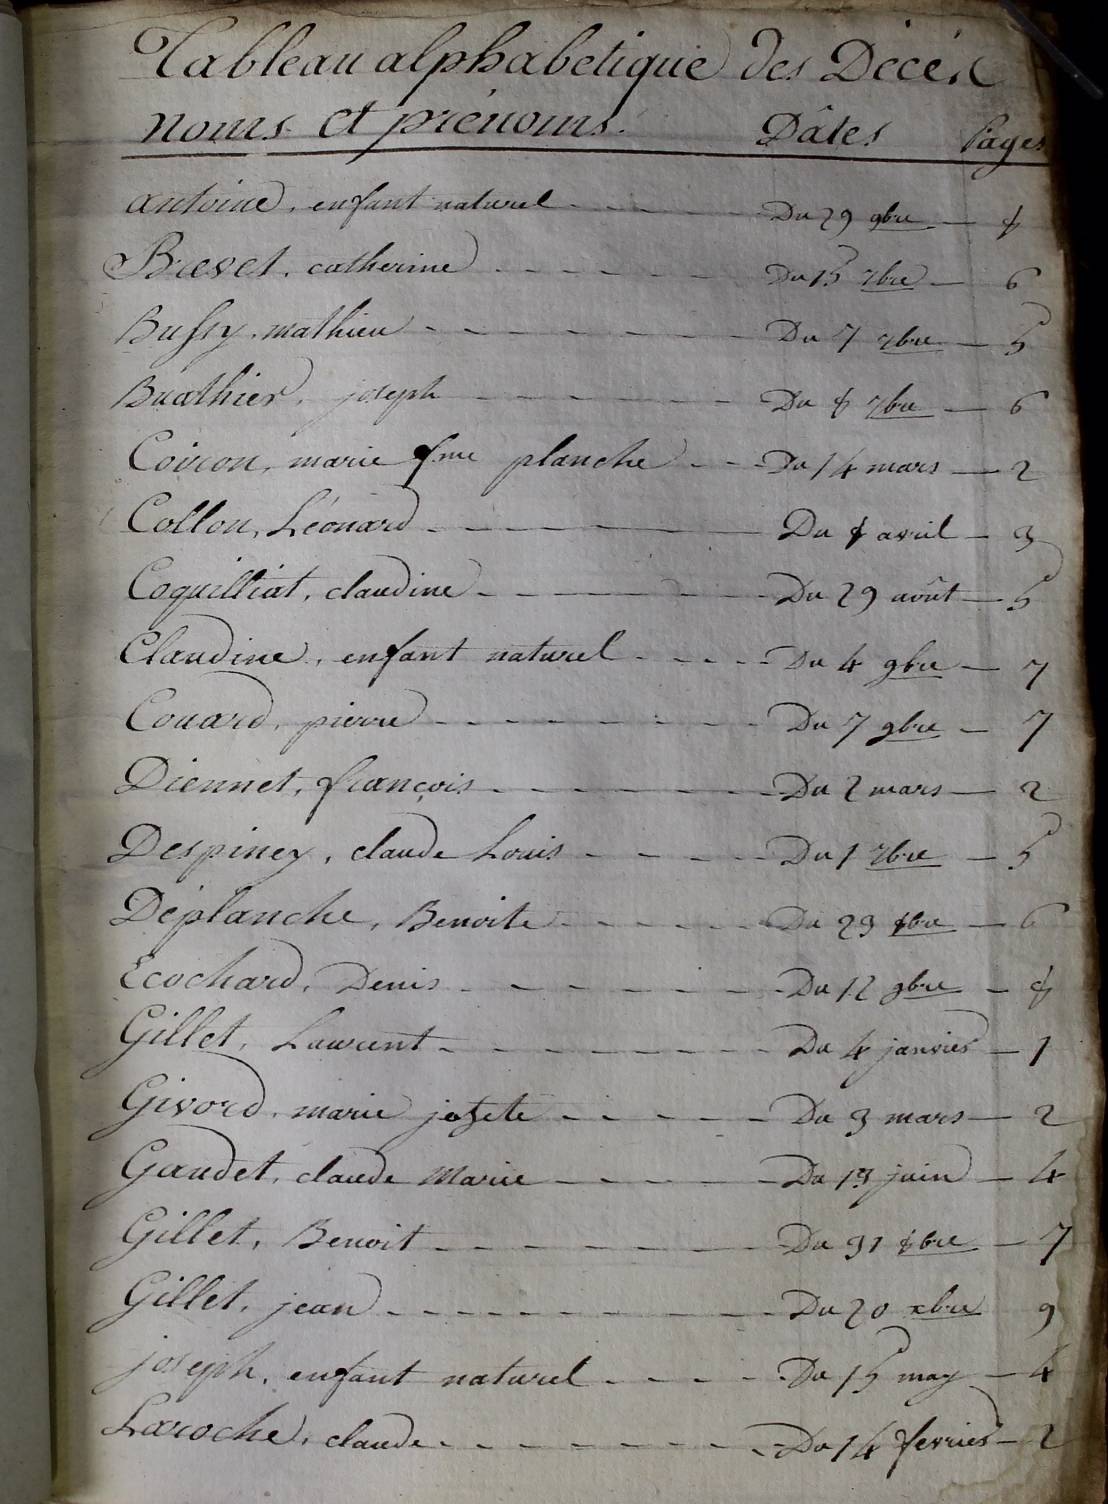 Tableau alphabetique des Décés
noms et prénoms. Dâtes Pages
antoine, enfant naturel Du 29 9bre 8
Brevet, catherine Du 15 7bre 6
Bussy, mathieu Du 7 7bre 5
Buathier, joseph Du 8 7bre 6
Coiron, marie fme planche Du 14 mars 2
Collon, Léonard Du 8 avril 3
Coquilliat, claudine Du 29 août 5
Claudine, enfant naturel Du 4 9bre 7
Couard, pierre Du 7 9bre 7
Diennet, françois Du 2 mars 2
Despiney, claude Louis Du 1 7bre 5
Déplanche, Benoite Du 23 8bre 6
Ecochard, Denis Du 12 9bre 8
Gillet, Laurent Du 4 janvier 1
Givord, marie josete Du 3 mars 2
Gaudet, claude Marie Du 13 juin 4
Gillet, Benoit Du 31 8bre 7
Gillet, jean Du 20 xbre 9
joseph, enfant naturel Du 15 may 4
Laroche, claude Du 14 fevrier 2